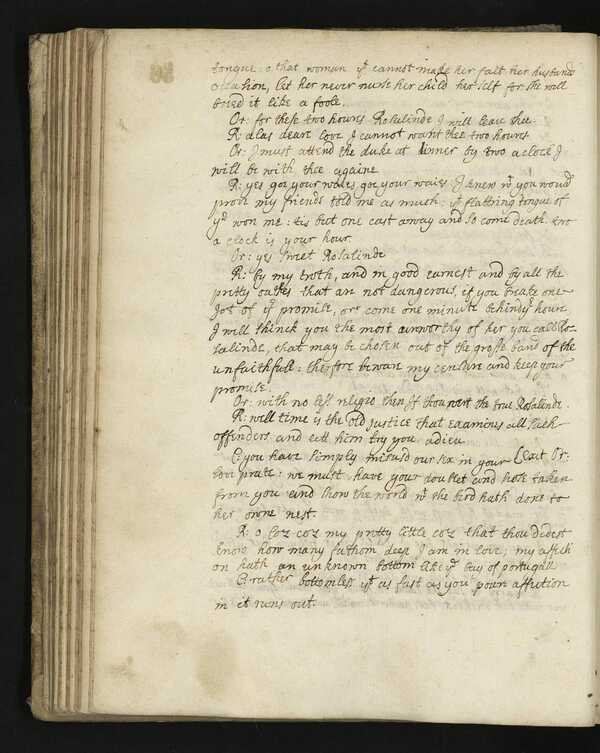 tongue: o that woman yt cannot make her falt her husbands
occasion, let her never nurse her child her self for she will
breed it like a foole.
Or: for these two howres Rosalinde I will leave thee.
R: alas deare love I cannot want thee two howres
Or: I must attend the duke at dinner by two a clock I
will be with thee againe
R: yes goe your waies goe your waies I knew wt you woud
prove my friends told me as much: yt flattring tongue of
yrs won me: tis but one cast away and so come death two
a clock is your hour
Or: yes sweet Rosalinde
R: by my troth, and in good earnest and by all the
pretty oathes that are not dangerous, if you breake one
Jot of yr promise, or come one minute behind yr houre
I will thinck you the most unworthy of her you call Ro
salinde, that may be chosen out of the grosse band of the
unfaithfull: therfore beware my censure and keep your
promise.
Or: with no less religio then if thou wert the true Rosalinde.
R: well time is the old justice that examines all such
offenders and lett him try you adieu
C: you have simply misusd our sex in your (exit Or:
love prate: we must have your doublet and hose taken
from you and show the world wt the bird hath done to
her owne nest.
R: o coz coz my pretty little coz that thou didest
know how many fathom deep I am in love; my affecti
on hath an unknown bottom like ye bay of portugall
C: rather bottomless yt as fast as you pour affection
in it runs out.